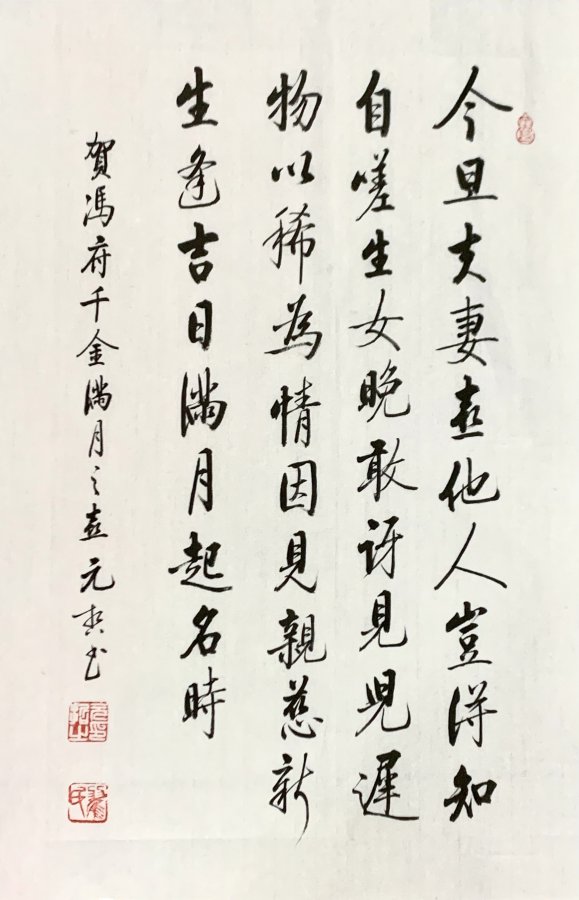 今旦夫妻喜他人豈得知
自嗟生女晚敢訝見兒遲
物以稀為情因見親慈新
生逢吉日滿月起名時
賀馮府千金滿月之喜元书